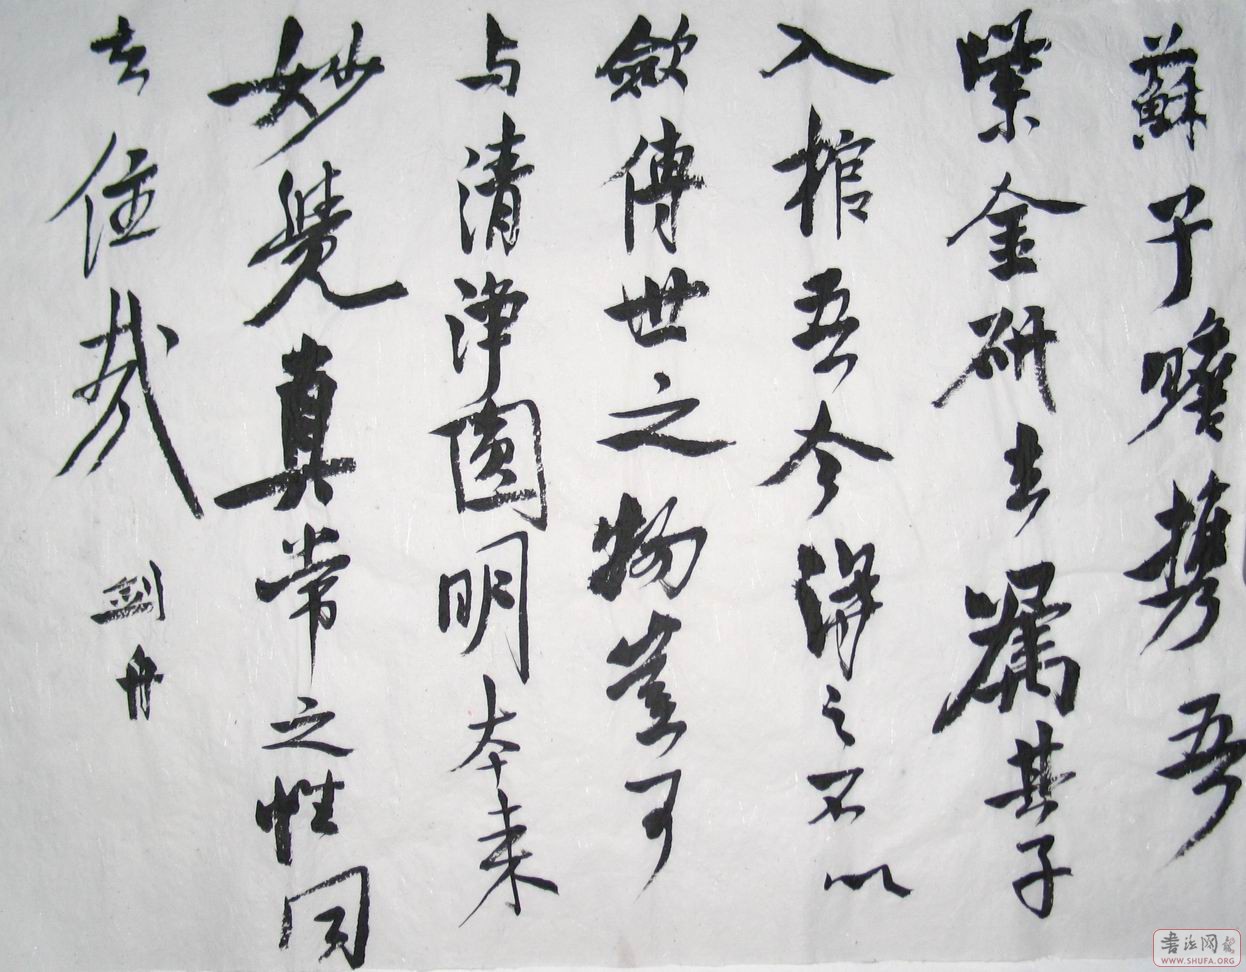 蘇子瞻携吾
紫金研去嘱其子
入棺吾今得之不以
斂傳世之物豈可
与清净圓明本来
妙覺真常之性同
去住哉
剑舟
书法网
WWW.SHUFA.ORG